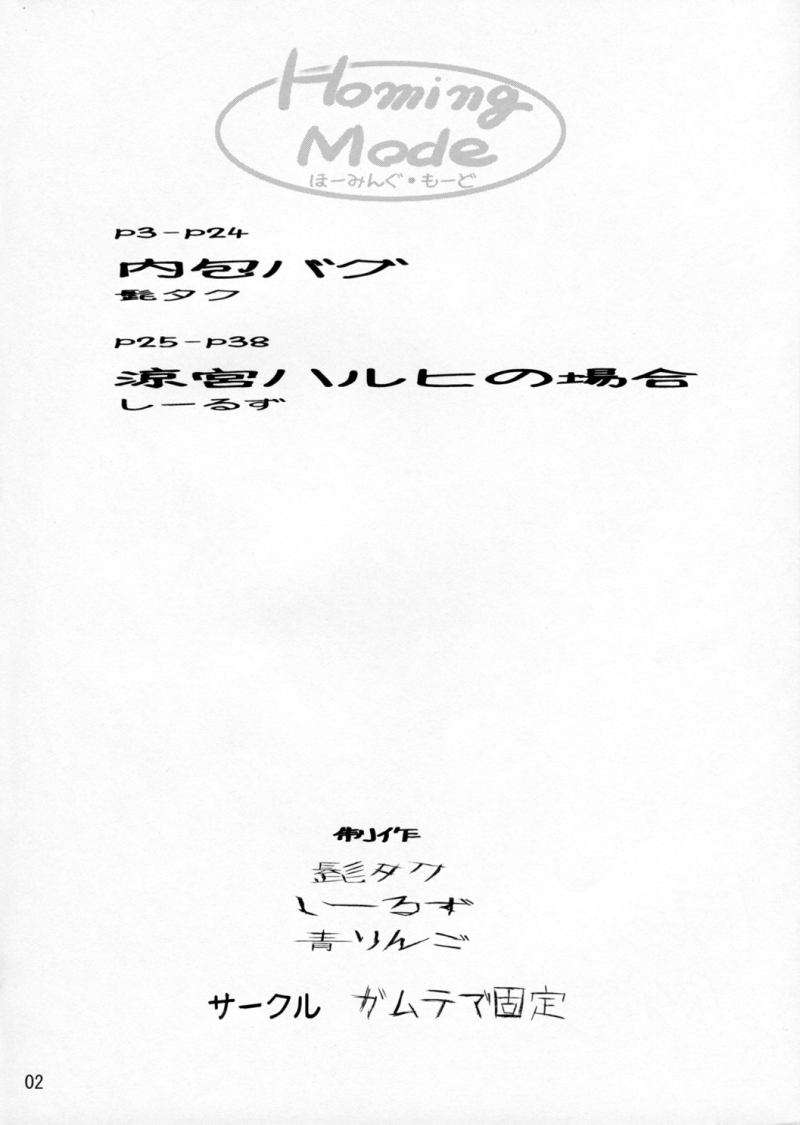 Homing
Mode
ほーみんぐ・もーど
p3-p24
内包バグ
髭タク
p25-p38
涼宮ハルヒの場合
しーるず
制作
髭タク
しーるず
青りんご
サークル ガムテマ固定
02